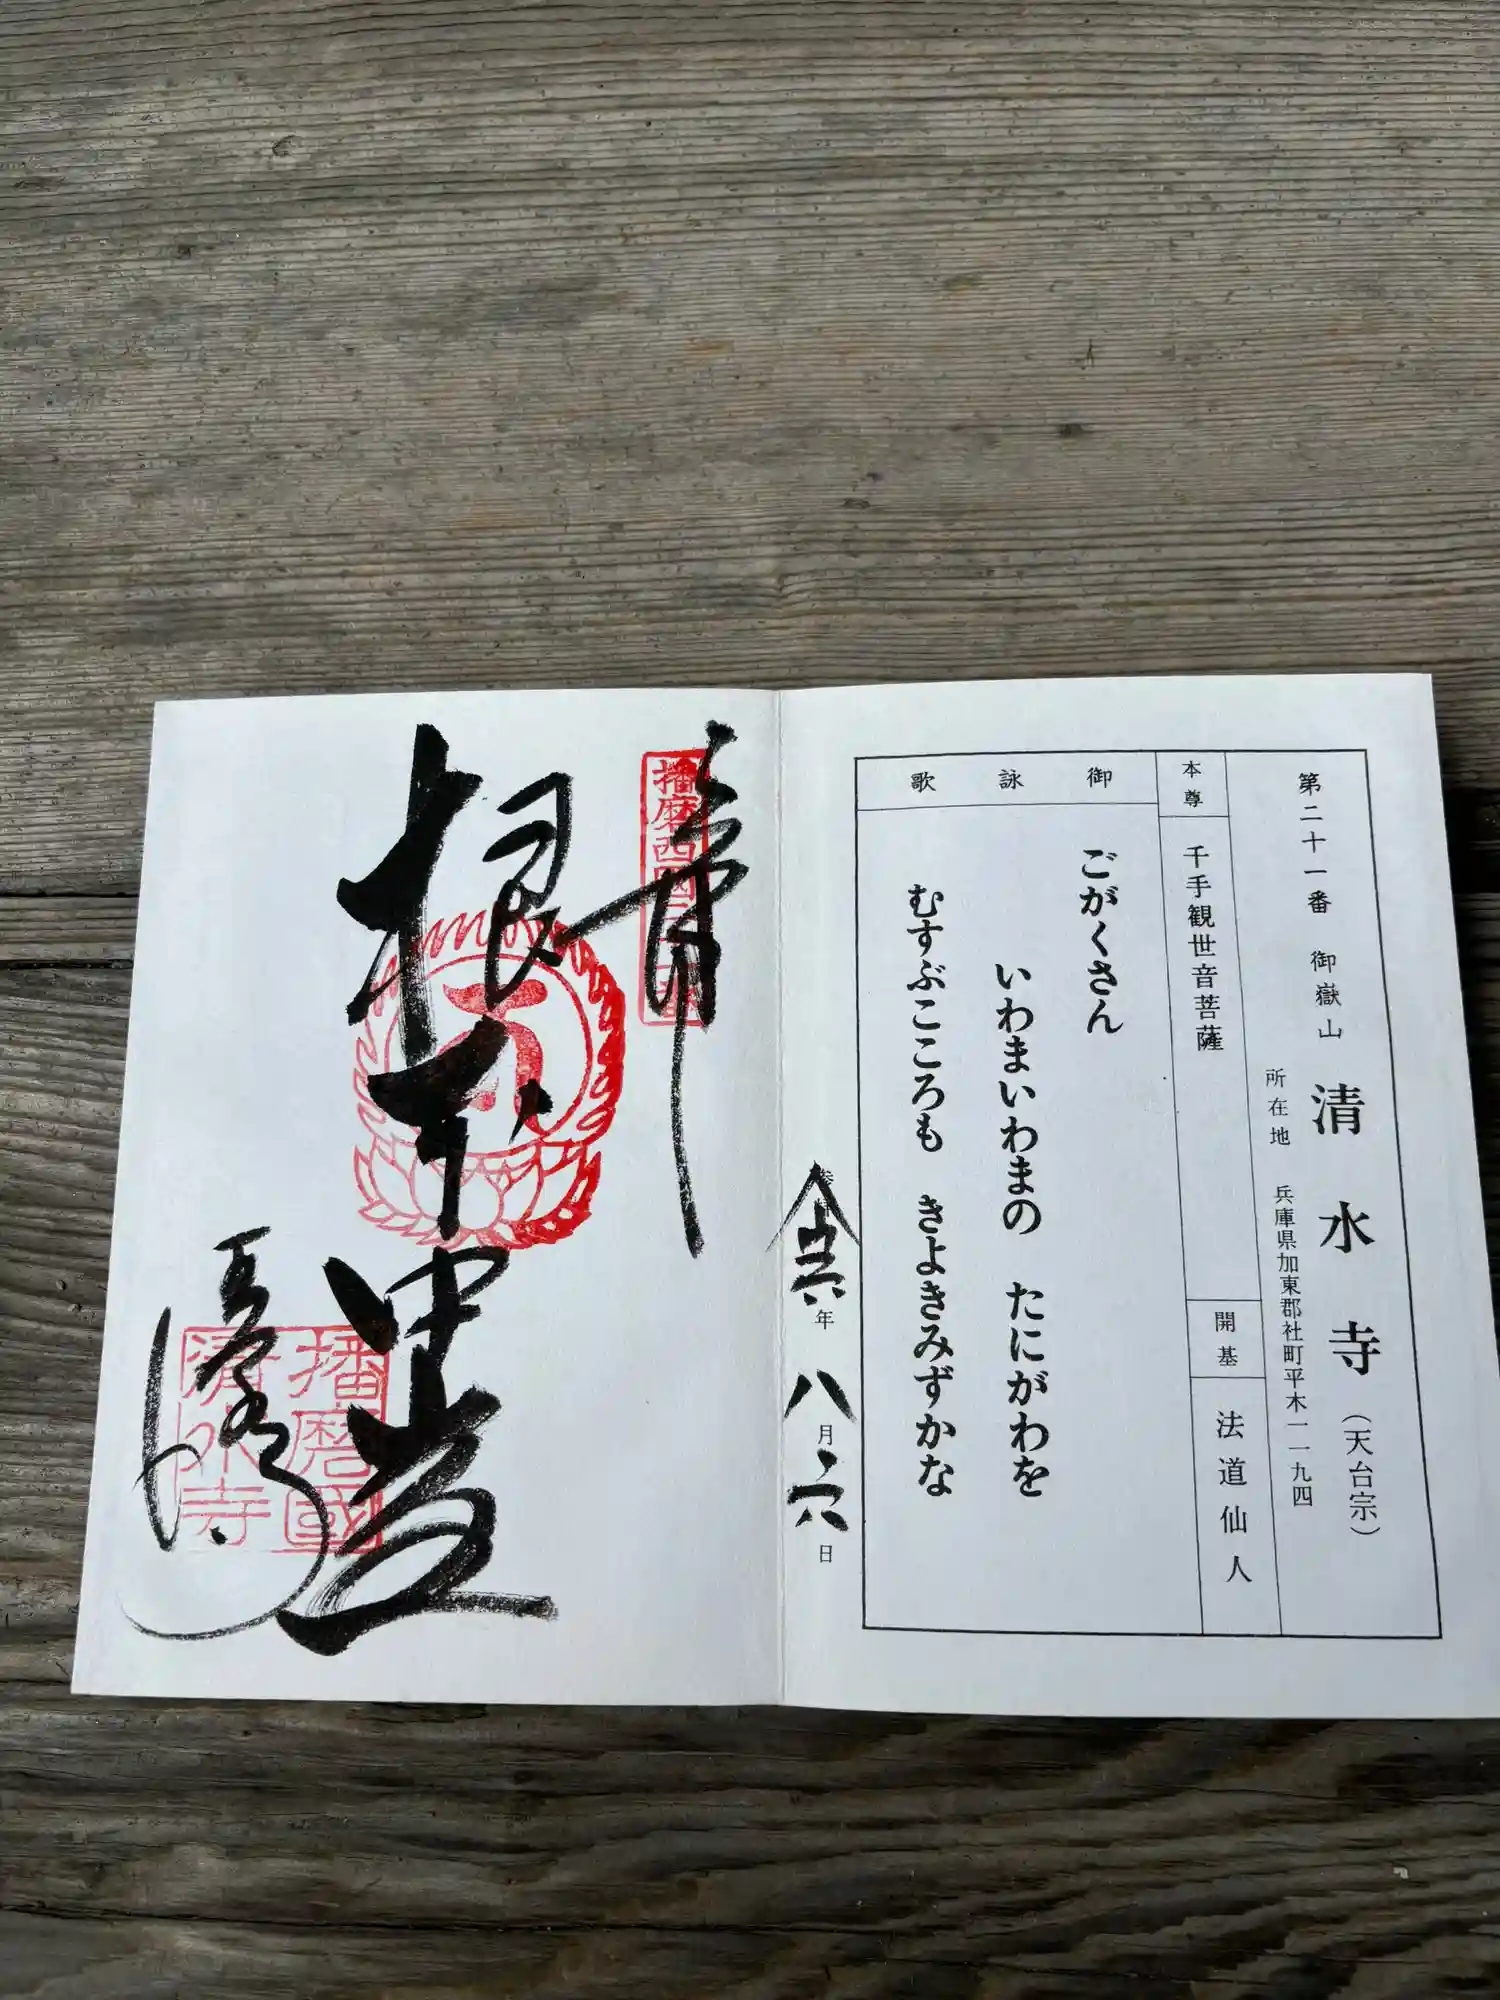 第二十一番 御嶽山 清水寺（天台宗）
所在地 兵庫県加東郡社町平木一一九四
本尊
千手観世音菩薩
開基
法道仙人
御詠歌
ごがくさん
いわまいわまの たにがわを
むすぶこころも きよきみずかな
年 八月六日
奉拝
播磨西國
根本中堂
播磨國
清水寺